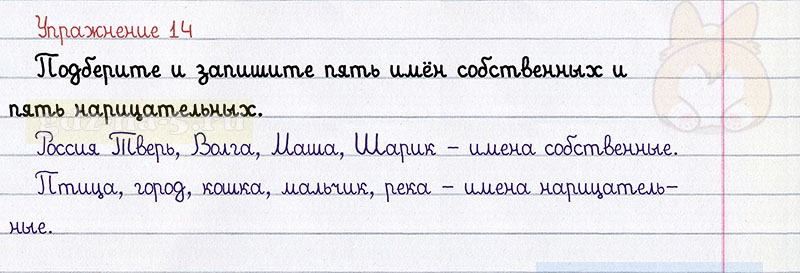 Упражнение 14
Подберите и запишите пять имён собственных и
пять нарицательных.
Россия Тверь, Волга, Маша, Шарик – имена собственные.
Птица, город, кошка, мальчик, река – имена нарицатель-
ные.